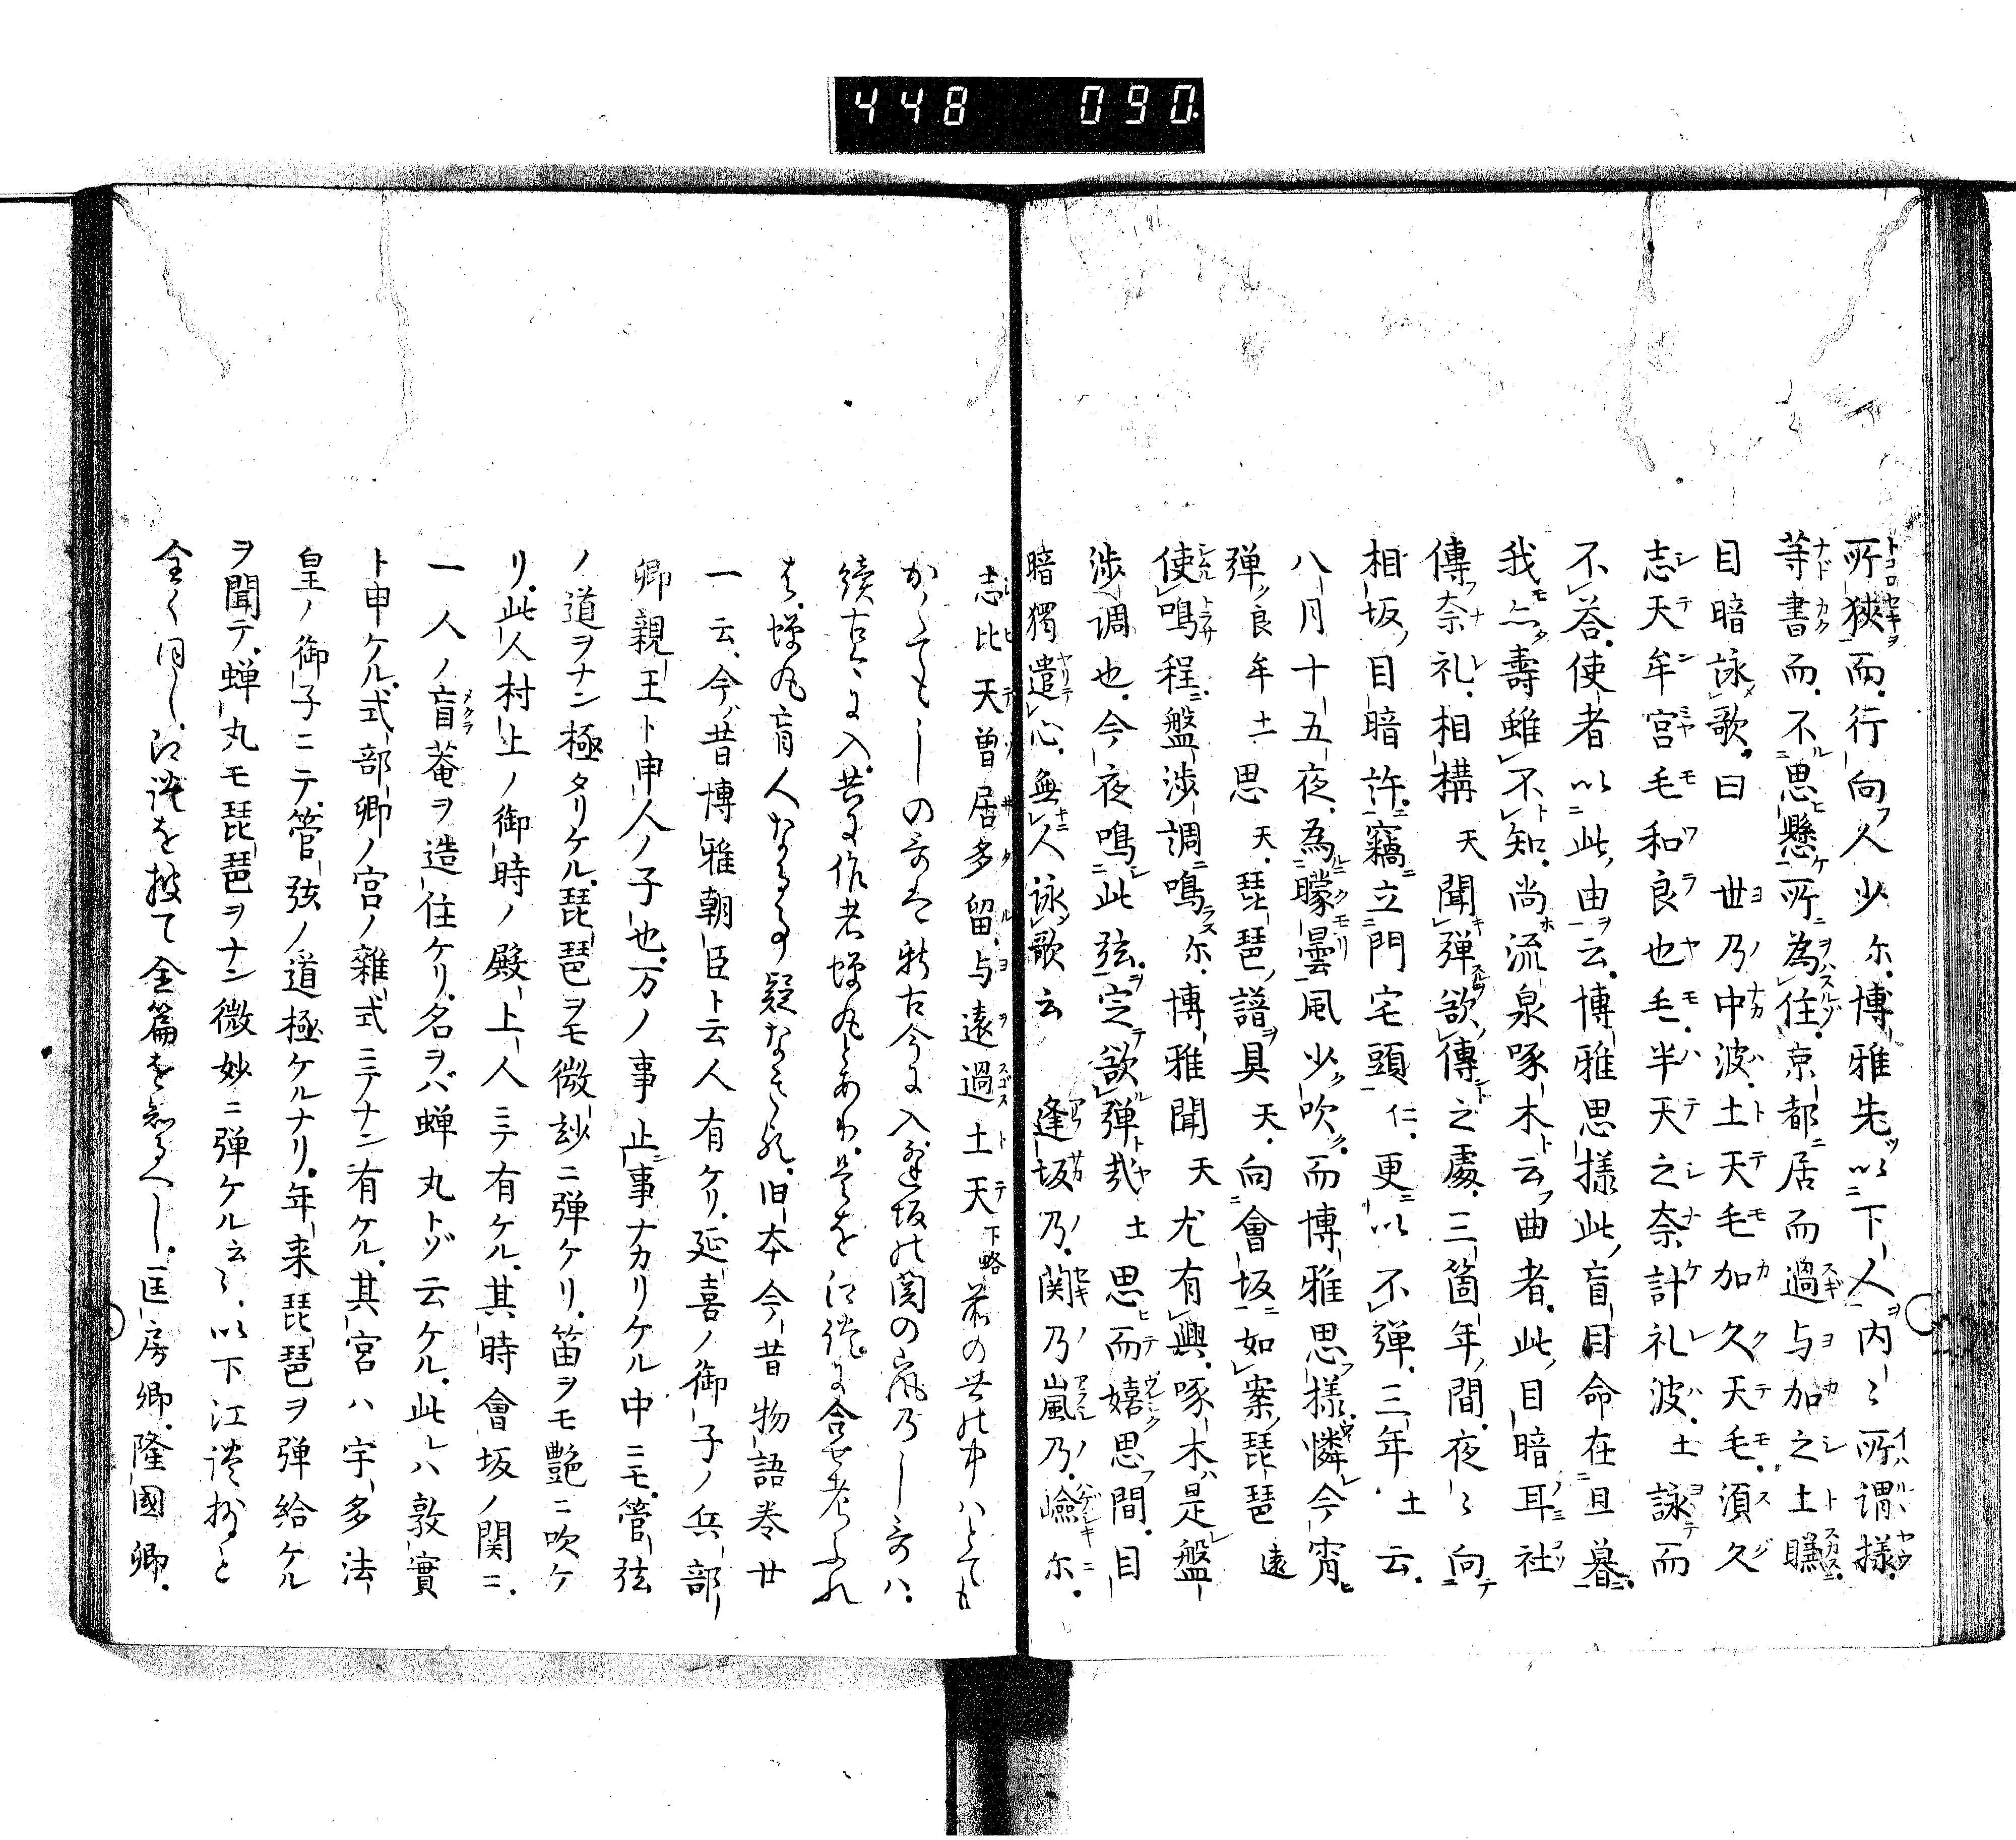 448 090.
所狭而。行向人少尓。博雅先以下人内〻所謂様。
等書而。不思懸所為住。京都居而過与加之土贃
目暗詠歌。曰 世乃中波。土天毛加久天毛。須久
志天牟宮毛和良也毛。半天之奈計礼波。土詠而
不答。使者以此由云。博雅思様此盲目命在旦暮。
我亡壽雖不知。尚流泉啄木云曲者。此目暗耳社
傳奈礼。相構天聞弾欲傳之處。三箇年間。夜〻向
相坂目暗許。竊立門宅頭仁。更以不弾。三年土云。
八月十五夜。為曚曇風少吹。而博雅思様。憐今宵
弾良牟土思天。琵琶譜具天。向會坂如案琵琶遠
使鳴程盤渉調鳴尓。博雅聞天尤有興。啄木是盤
渉調也。今夜鳴此弦。定欲弾哉土思而嬉思間。目
暗獨遣心。無人詠歌云 逢坂乃。関乃嵐乃。嶮尓。
志比天曽居多留。与遠過土天下略 前の世の中ハとても
かくてもしの哥は新古今に入。逢坂の関の嵐乃し哥ハ。
續古今に入。共に作者蝉丸とあり。是を江談に合せ考ふれ
は。蝉丸盲人なる事疑なき歟。旧本今昔物語巻廿
一云。今昔博雅朝臣ト云人有ケリ。延喜ノ御子ノ兵部
卿親王ト申人ノ子也。万ノ事止事ナカリケル中ニモ。管弦
ノ道ヲナン極タリケル。琵琶ヲモ微妙ニ弾ケリ。笛ヲモ艶ニ吹ケ
リ。此人村上ノ御時ノ殿上人ニテ有ケル。其時會坂ノ関ニ。
一人ノ盲菴ヲ造住ケリ。名ヲバ蝉丸トゾ云ケル。此レハ敦實
ト申ケル。式部卿ノ宮ノ雜式ニテナン有ケル。其宮ハ宇多法
皇ノ御子ニテ。管弦ノ道極ケルナリ。年来琵琶ヲ弾給ケル
ヲ聞テ。蝉丸モ琵琶ヲナン微妙ニ弾ケル云〻。以下江談抄と
全く同し。江談を披て全篇を知るへし。匡房卿。隆國卿。